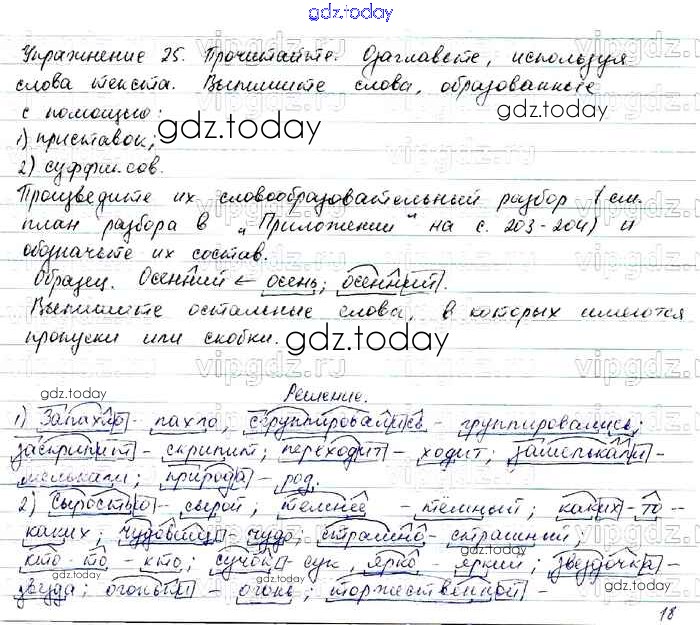 gdz.today
Упражнение 25. Прочитайте. Озаглавьте, используя
слова текста. Выпишите слова, образованные
с помощью:
1) приставок;
gdz.today
2) суффиксов.
Произведите их словообразовательный разбор (см.
план разбора в "Приложении" на с. 203-204) и
обозначьте их состав.
Образец. Осенний ← осень; осенний.
Выпишите остальные слова, в которых имеются
пропуски или скобки.
gdz.today
gdz.today
Решение.
1) Запахло - пахло, сгруппировались - группировались;
заскрипит - скрипит; переходит - ходит; замелькали -
мелькали; природа - род.
2) Сыростью - сырой; темнее - темный; каких-то -
каких; чудовищ - чудо, страшно - страшный;
кто-то - кто; сучок - сук, ярко - яркий; звездочка -
звезда; огоньки - огонь; торжественной -
gdz.today
gdz.today
gdz.today
18
vipgdz.ru